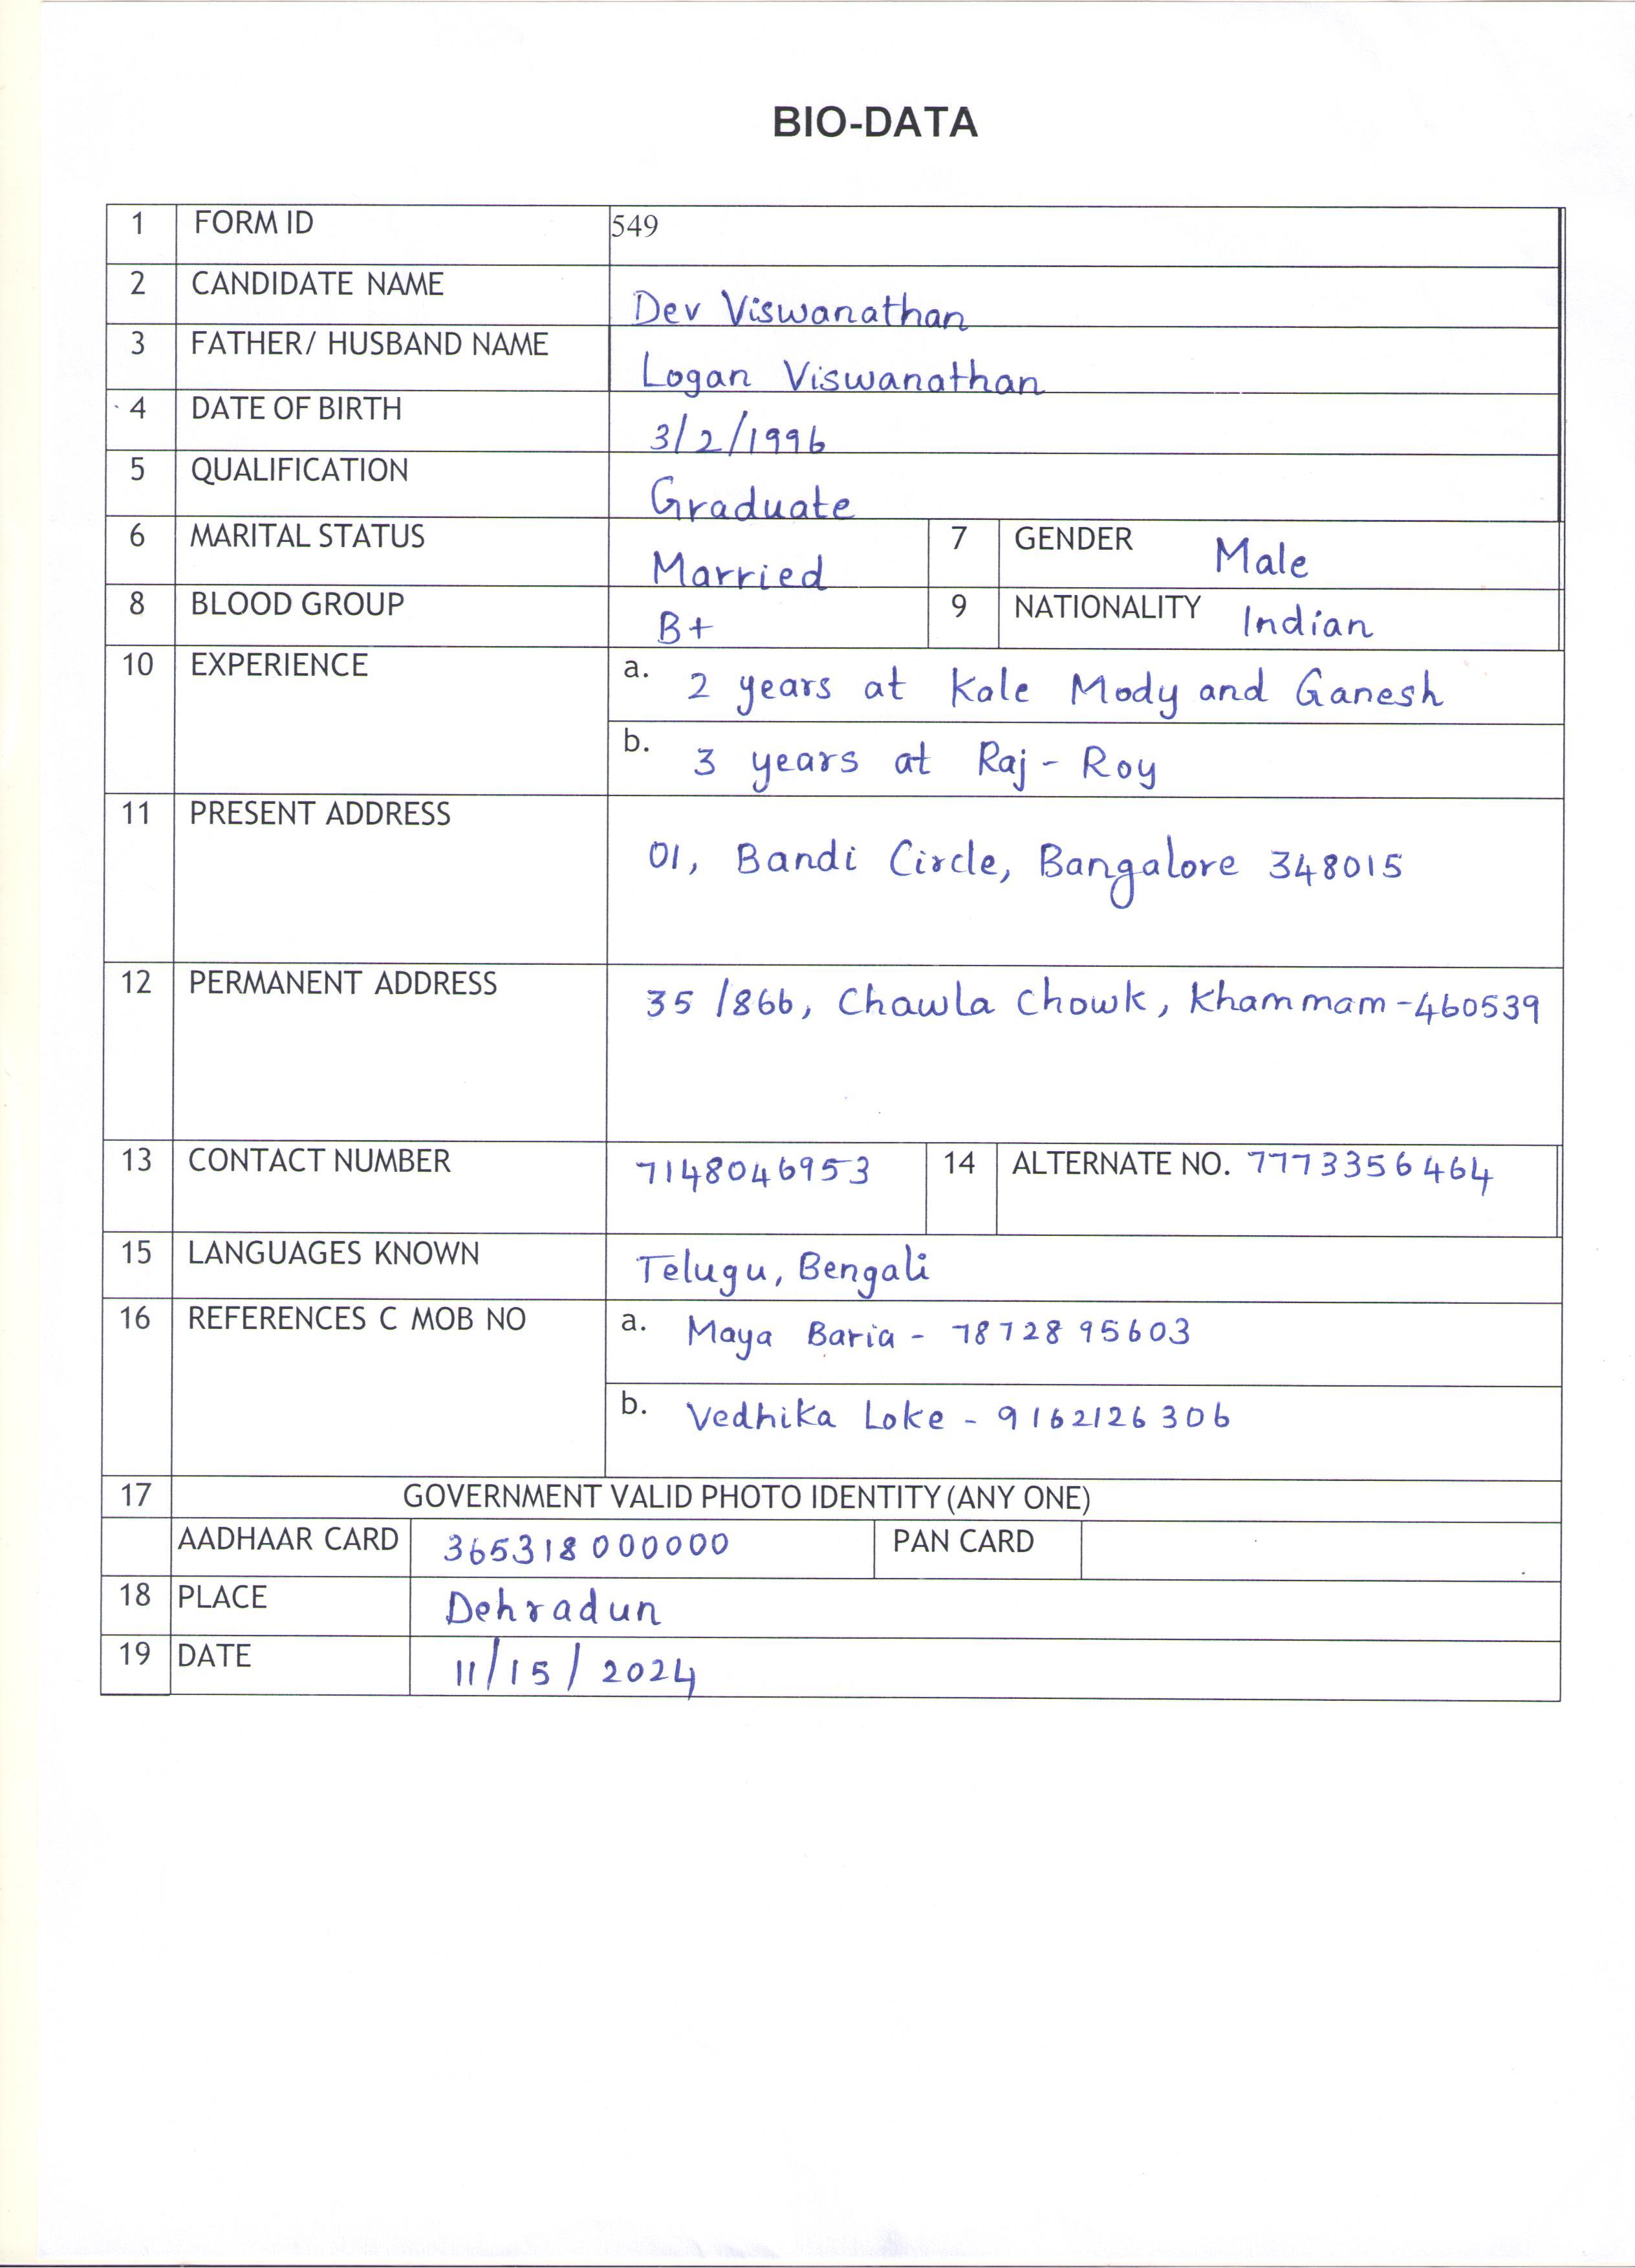 BIO-DATA
1 FORM ID 549
2 CANDIDATE NAME Dev Viswanathan
3 FATHER/ HUSBAND NAME Logan Viswanathan
4 DATE OF BIRTH 3/2/1996
5 QUALIFICATION Graduate
6 MARITAL STATUS Married 7 GENDER Male
8 BLOOD GROUP B+ 9 NATIONALITY Indian
10 EXPERIENCE a. 2 years at Kale Mody and Ganesh
b. 3 years at Raj - Roy
11 PRESENT ADDRESS 01, Bandi Circle, Bangalore 348015
12 PERMANENT ADDRESS 35 /866, Chawla Chowk, Khammam-460539
13 CONTACT NUMBER 7148046953 14 ALTERNATE NO. 7773356464
15 LANGUAGES KNOWN Telugu, Bengali
16 REFERENCES C MOB NO a. Maya Baria - 7872895603
b. Vedhika Loke - 9162126306
17 GOVERNMENT VALID PHOTO IDENTITY (ANY ONE)
AADHAAR CARD 365318000000 PAN CARD
18 PLACE Dehradun
19 DATE 11/15/2024